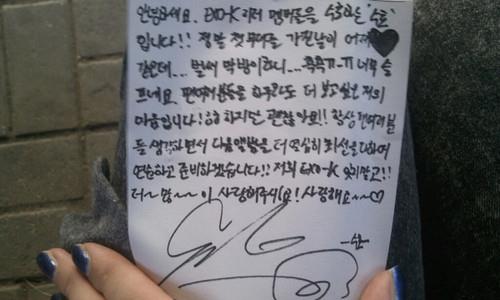 안녕하세요. EXO-K 리더 멤버들을 수호하는 "수호"
입니다!! 정말 첫 무대를 가진 날이 어제
같은데... 벌써 막방이라니... 흑흑ㅠ.ㅠ 너무 슬
프네요. 팬여러분들을 하루라도 더 보고싶은 저의
마음입니다! 하지만 괜찮아요!! 항상 팬여러분
들 생각하면서 다음앨범을 더 열심히 최선을 다하여
연습하고 준비하겠습니다!! 저희 EXO-K 잊지말고!!
더~ 많~~ 이 사랑해주시고요! 사랑해요~~♡
-수호-